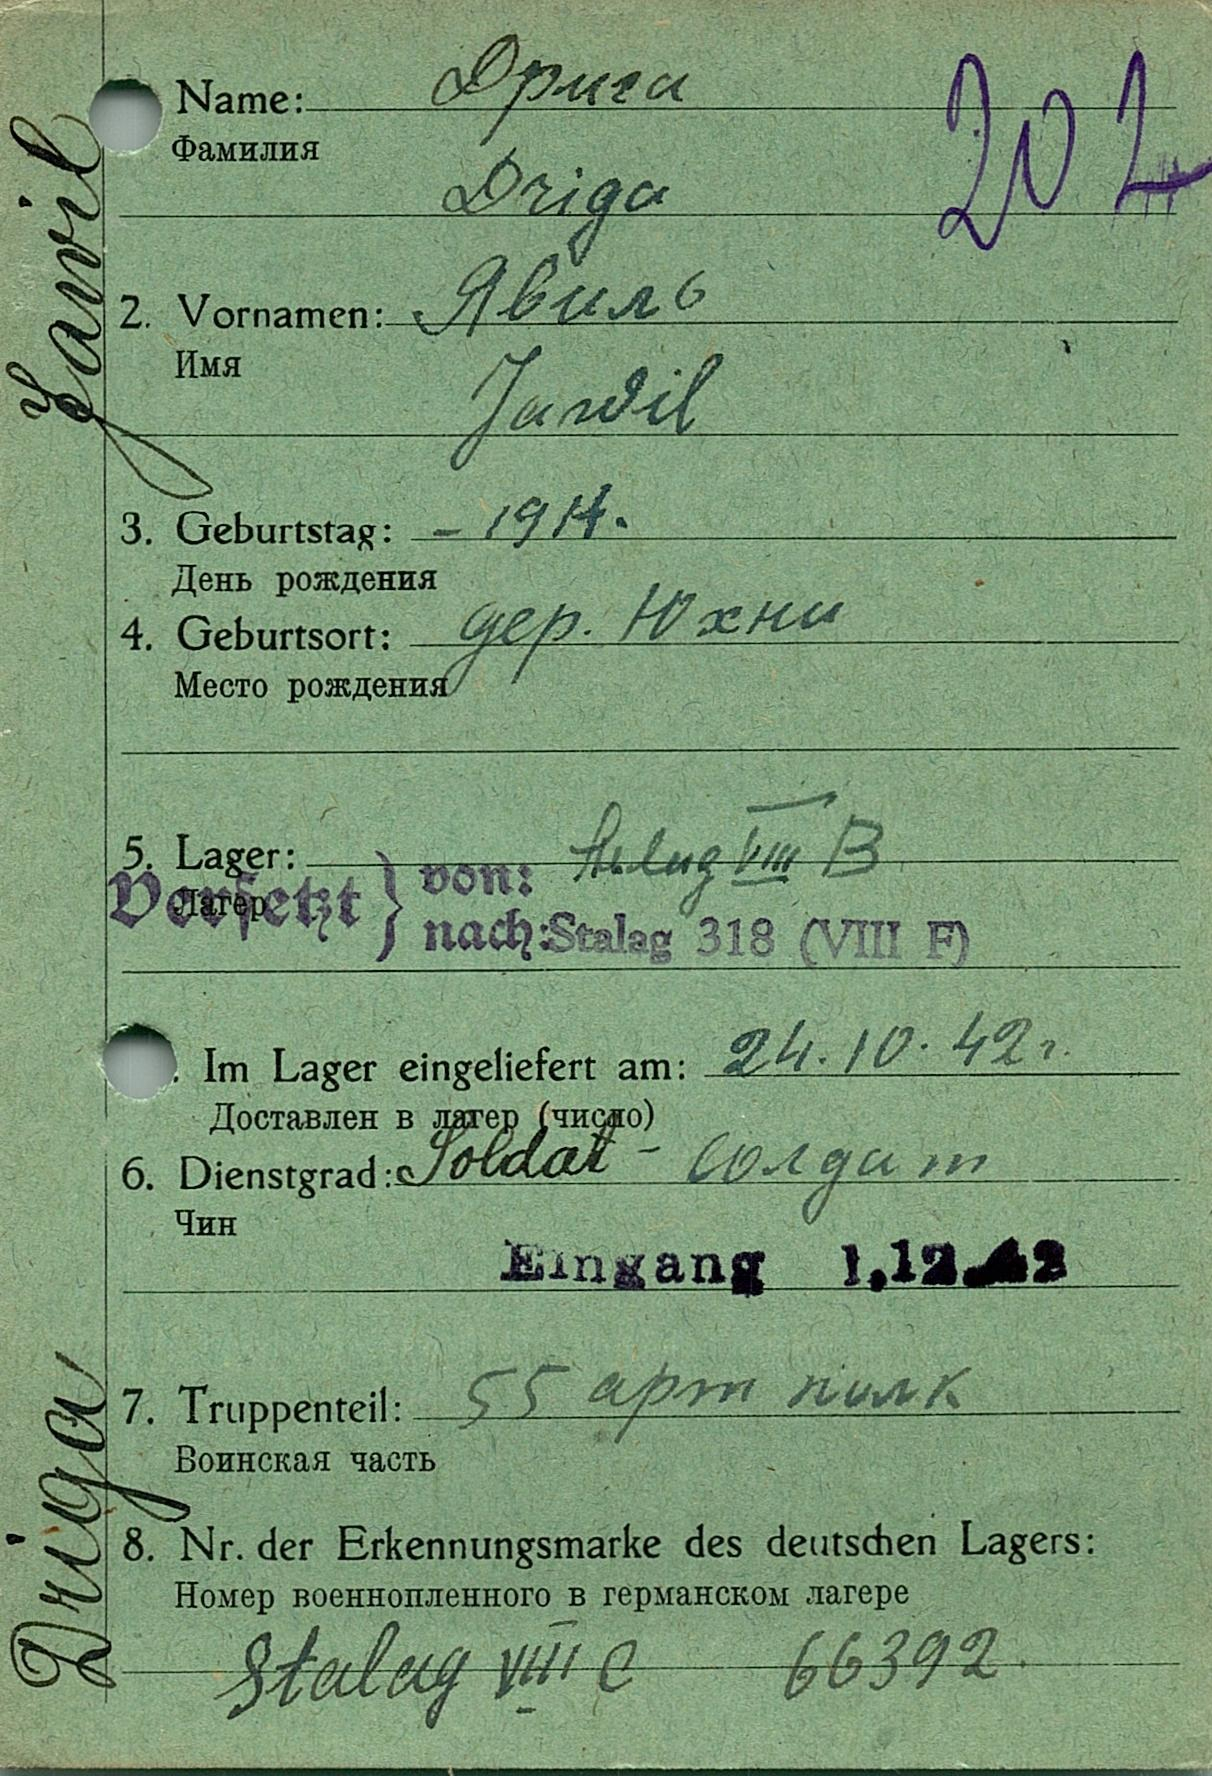 Name: Дрига
Фамилия
Driga
202
2. Vornamen: Явиль
Имя
Jawil
3. Geburtstag: - 1914.
День рождения
4. Geburtsort: дер. Юхни
Место рождения
5. Lager: Stalag VIII B
Лагер
Versetzt } von:
nach: Stalag 318 (VIII F)
. Im Lager eingeliefert am: 24.10.42 г.
Доставлен в лагер (число)
6. Dienstgrad: Soldat - солдат
Чин
Eingang 1.12.42
7. Truppenteil: 55 арт полк
Воинская часть
8. Nr. der Erkennungsmarke des deutschen Lagers:
Номер военнопленного в германском лагере
Stalag VIII C 66392.
Driga Jawil